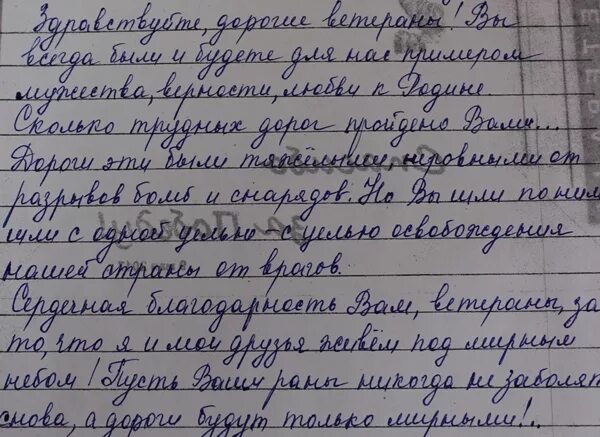 Здравствуйте, дорогие ветераны! Вы
всегда были и будете для нас примером
мужества, верности, любви к Родине.
Сколько трудных дорог пройдено Вами...
Дороги эти были тяжёлыми, неровными от
разрывов бомб и снарядов. Но Вы шли по ним,
шли с одной целью – с целью освобождения
нашей страны от врагов.
Сердечная благодарность Вам, ветераны, за
то, что я и мои друзья живём под мирным
небом! Пусть Ваши раны никогда не заболят
снова, а дороги будут только мирными!..